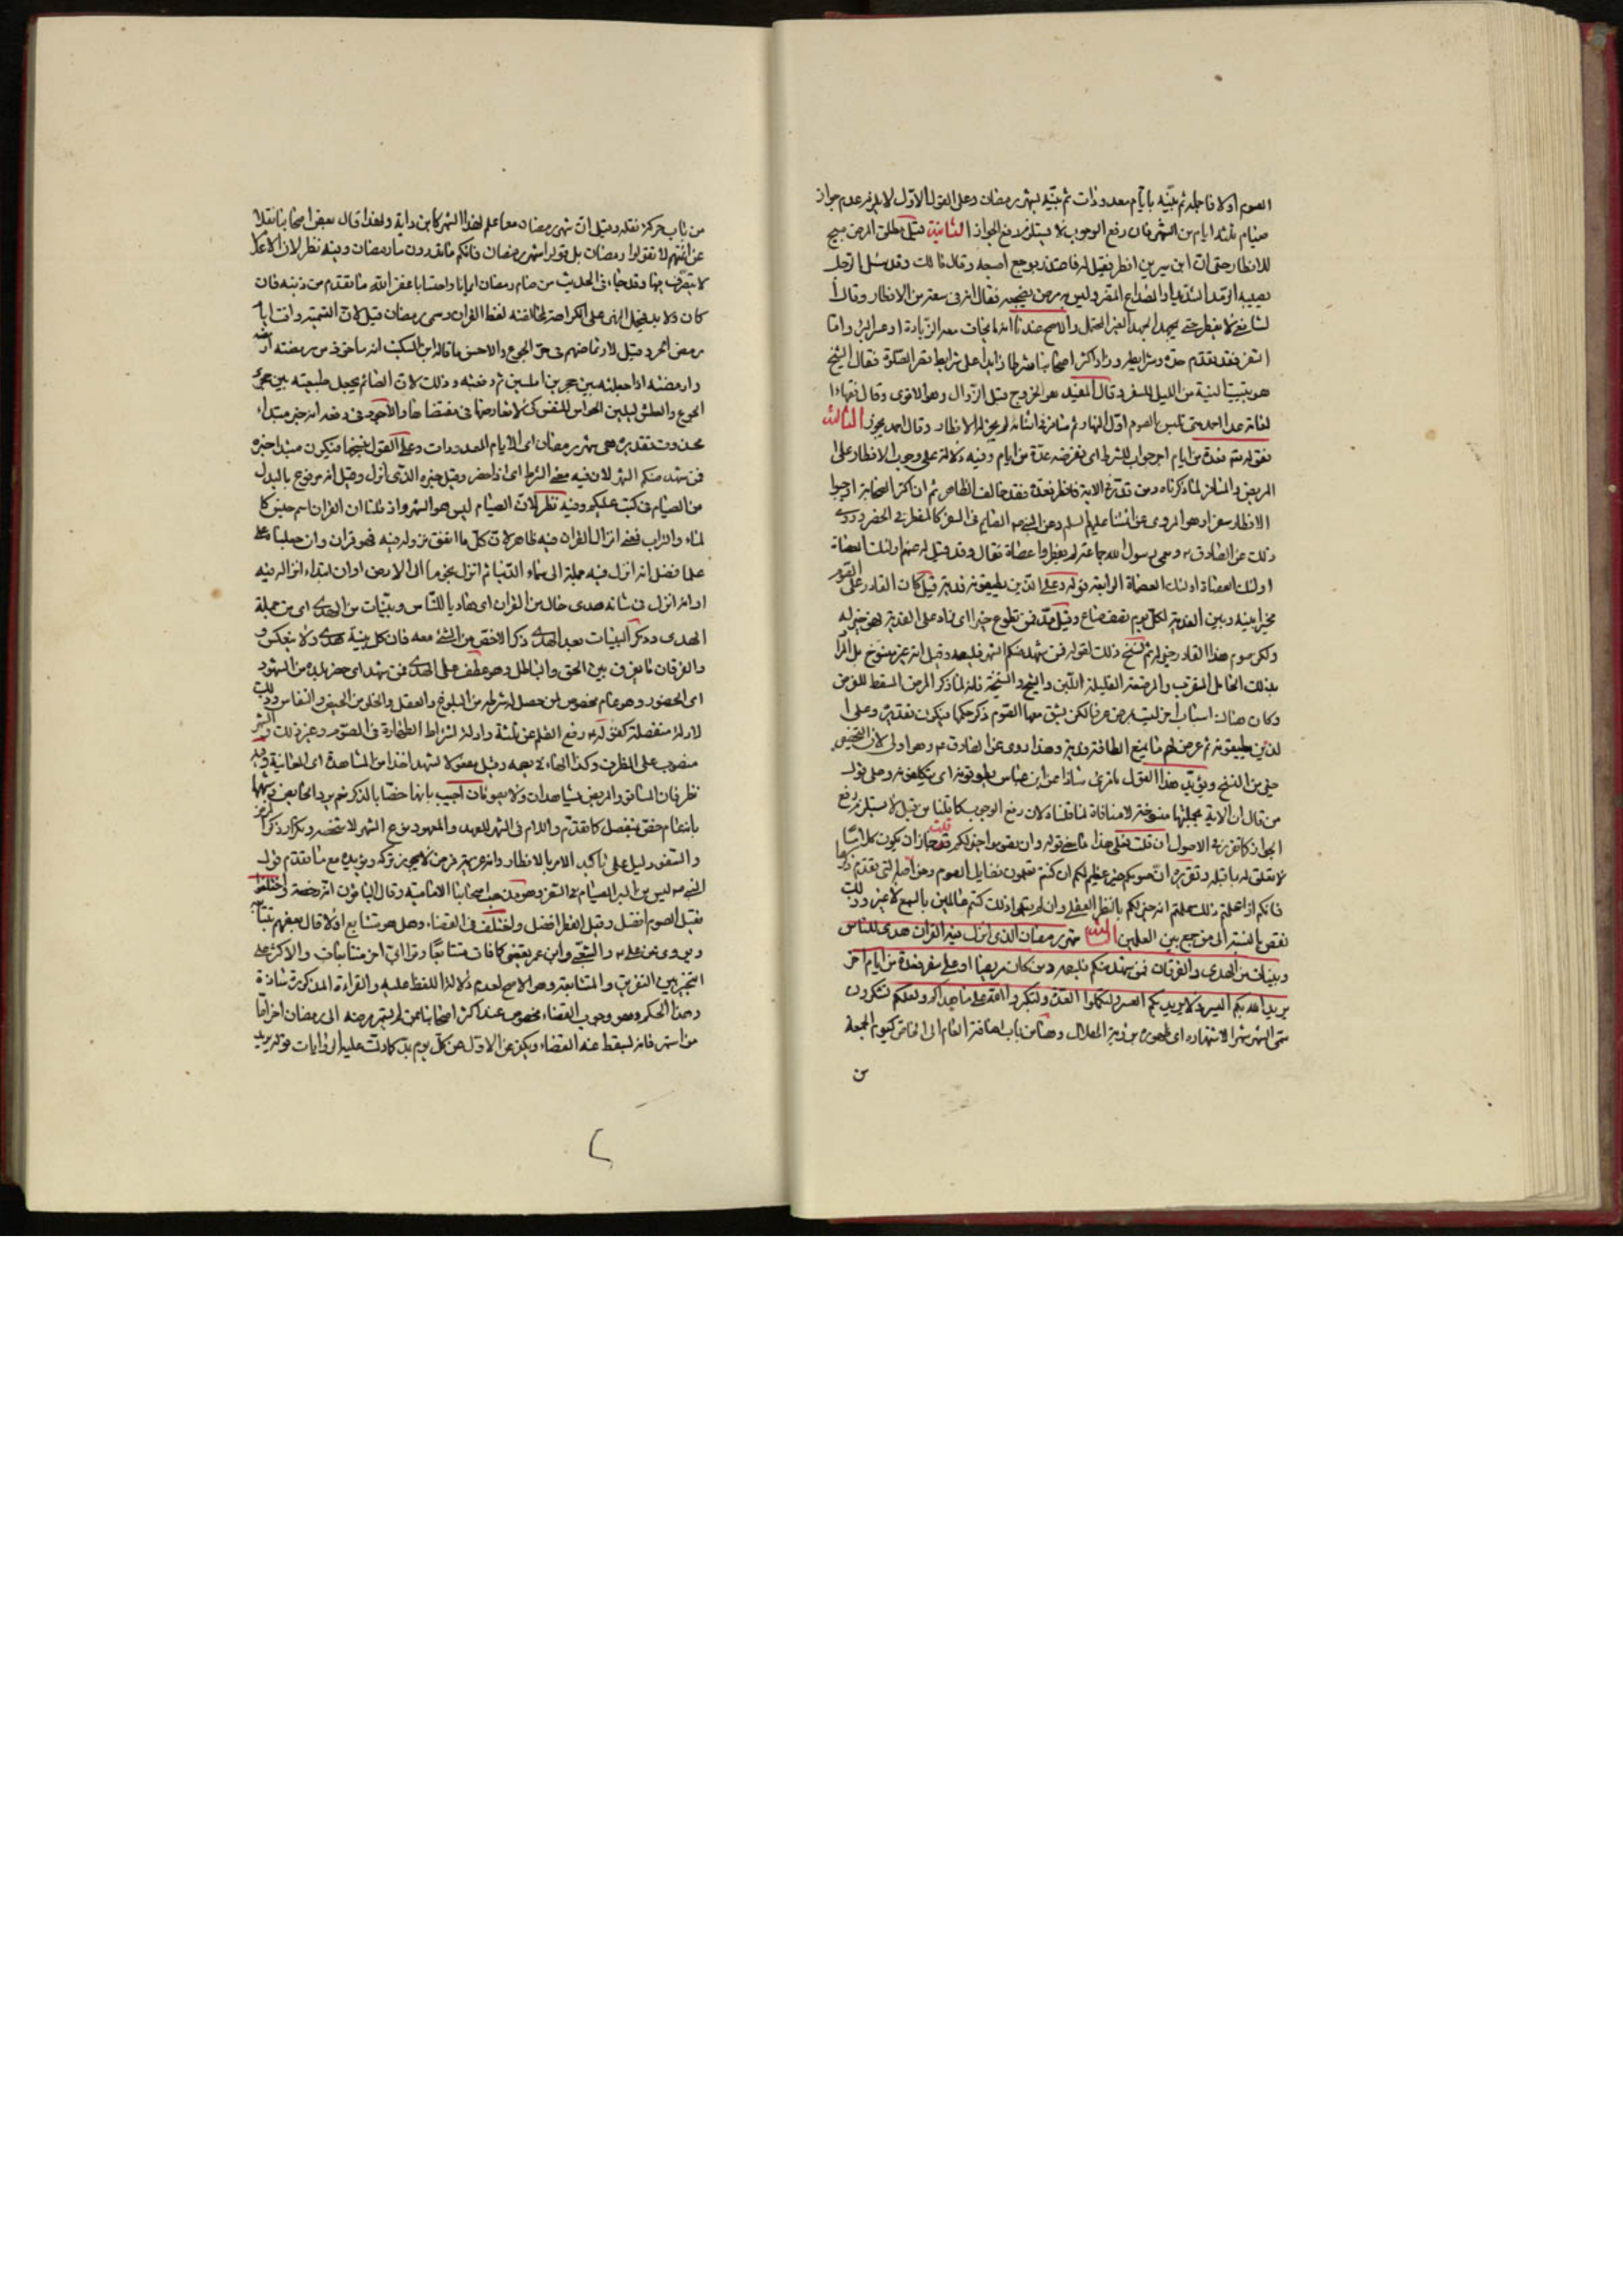 الصوم اولا فاجله ثم بيّنه بايام معدودات ثم بيّنه بشهر رمضان وعلى القول الاوّل لا يلزم عدم جواز
صيام ثلثة ايام من الشهر فان رفع الوجوب لا يستلزم رفع الجواز الثانية قيل مطلق المرض مبيح
للافطار حتى ان ابن سيرين افطر فقيل له فاعتذر بوجع اصبعه وقال مالك وقد سئل الرجل
يصيبه الرمد الشديد او الصداع المضر وليس به مرض يضجعه فقال انه في سعة من الافطار وقال
الشافعي لا يفطر حتى يجهده الجهد الغير المحتمل والاصح عندنا انه ما يخاف معه الزيادة او عسر البرء واما
السفر فقد تقدم حده وشرايطه وزاد اكثر اصحابنا شرطا زايدا على شرايط قصر الصلوة فقال الشيخ
هو تبييت النية من الليل للسفر وقال المفيد هو الخروج قبل الزوال وهو الاقوى وقال فقهاء
العامة عدا احمد متى تلبس بالصوم اول النهار ثم سافر في اثنائه لم يجز له الافطار وقال احمد يجوز الثالثة
قوله تعالى فعدة من ايام اخر جواب للشرط اى ففرضه عدّة من ايام وفيه دلالة على وجوب الافطار على
المريض والمسافر لما ذكرناه ومن قدّر في الاية فافطر فعدة فقد خالف الظاهر ثم ان اكثر الصحابة اوجبوا
الافطار سفرا وهو المروى عن ائمتنا عليهم السلم وعن النبي ص الصايم في السفر كالمفطر في الحضر وروى
ذلك عن الصادق ع وسمى رسول الله جماعة لم يفطروا عصاة فقال وقد قيل له عنهم اولئك العصاة
اولئك العصاة اولئك العصاة الرابعة قوله وعلى الذين يطيقونه فدية قيل كان القادر على الصوم
مخيرا بينه وبين الفدية لكل يوم نصف صاع وقيل مدّ فمن تطوع خيرا اى زاد على الفدية فهو خير له
ولكن صوم هذا القادر خير له ثم نسخ ذلك بقوله فمن شهد منكم الشهر فليصمه وقيل انه غير منسوخ بل المراد
بذلك الحامل المقرب والمرضعة القليلة اللبن والشيخ والشيخة فانه لما ذكر المرض المسقط للفرض
وكان هناك اسباب اخر ليست بمرض عرفا لكن يشق معها الصوم ذكر حكمها فيكون تقديره وعلى
الذين يطيقونه ثم عرض لهم ما يمنع الطاقة فدية وهذا مروى عن الصادق ع وهو اولى لان التخصيص
خير من النسخ ويؤيد هذا القول ما قرئ شاذا عن ابن عباس يطوقونه اى يتكلفونه وعلى قول
من قال ان الاية مجملتها منسوخة لا منافاة لما قلناه لان رفع الوجوب كما قلنا من قبل لا يستلزم رفع
الجواز كما تقرر في الاصول ان قلت فعلى هذا ما معنى قوله وان تصوموا خير لكم قلت جاز ان يكون كلاما
لا تعلق له بما قبله وتقديره انّ صومكم خير عظيم لكم ان كنتم تعلمون فضايل الصوم وهو اصله التي تقدم ذكرها
فانكم اذا علمتم ذلك علمتم انه خير لكم بالنظر العقلى وان لم تعلموا ذلك كنتم عالمين بالسمع لا غير وذلك
نقص بالنسبة الى من جمع بين العلمين الثالثة شهر رمضان الذى انزل فيه القران هدى للناس
وبينات من الهدى والفرقان فمن شهد منكم فليصمه ومن كان مريضا او على سفر فعدة من ايام اخر
يريد الله بكم اليسر ولا يريد بكم العسر ولتكملوا العدة ولتكبروا الله على ما هداكم ولعلكم تشكرون
سمى الشهر شهرا لاشتهاره اى ظهوره برؤية الهلال وهنا من باب اضافة العام الى الخاص كيوم الجمعة
من
من باب حركة نقله وقيل ان شهر رمضان معا علم لهذا الشهر كابن داية ولهذا قال بعض اصحابنا نقلا
عن ائمتهم لا تقولوا رمضان بل قولوا شهر رمضان فانكم ما تدرون ما رمضان وفيه نظر لان الاعلام
لا يتصرف فيها وقد جاء في الحديث من صام رمضان ايمانا واحتسابا غفر الله ما تقدم من ذنبه فان
كان ولا بد فيحمل النهى على الكراهة لمخالفته لفظ القران وسمى رمضان قيل لان التسمية وافت ايام
رمض الحر وقيل لارتماضهم في حر الجوع والاحسن ما قاله ابن السكيت انه ماخوذ من رمضته ارمضه
وارمضته اذا جعلته بين حجرين املسين ثم دققته وذلك لان الصائم يجعل طبيعته بين حجرى
الجوع والعطش ليلين الحواس للنفس كى لا تعارضها في مقتضاها والاجود في رفعه انه خبر مبتداء
محذوف تقديره هى شهر رمضان اى الايام المعدودات وعلى القول بنسخها فيكون مبتدا خبره
فمن شهد منكم الشهر لان فيه معنى الشرط اى اذا حضر وقيل خبره الذى انزل وقيل انه مرفوع بالبدل
من الصيام في كتب عليكم وفيه نظر لان الصيام ليس هو الشهر واذ قلنا ان القران اسم جنس كا
لماء والتراب فمعنى انزال القران فيه ظاهر لان كل ما اتفق نزوله فيه فهو قران وان جعلناه
علما فقيل انه انزل فيه جملة الى سماء الدنيا ثم انزل نجوما الى الارض او ان ابتداء انزاله فيه
او انه انزل في شانه هدى حال من القران اى هاديا للناس وبينات من الهدى اى من جملة
الهدى وذكر البينات بعد الهدى ذكر الاخص من الشئ معه فان كل بينة هدى ولا ينعكس و
والفرقان ما يفرق بين الحق والباطل وهو عطف على الهدى فمن شهد اى حضر بلده من الشهود
اى الحضور وهو عام مخصوص لمن حصل له شرطه من البلوغ والعقل والخلو من الحيض والنفاس وذلك
لادلة منفصلة كقوله ع رفع القلم عن ثلثة وادلة اشتراط الطهارة في الصوم وغير ذلك والشهر
منصوب على الظرف وكذا الهاء في يصمه وقيل مفعول لا شهد اخذا من المشاهدة اى المعاينة وفيه
نظر فان المسافر والمريض يشاهدان ولا يصومان اجيب بانهما خصّا بالذكر نعم يرد الحائض وشبهها
بانهما مخصص بمنفصل كما تقدم واللام في الشهر للعهد والمعهود نوع الشهر لا شخصه وتكرار ذكر المرض
والسفر دليل على تاكيد الامر بالافطار وانه عزيمة فرض لا يجوز تركه ويؤيده مع ما تقدم قول
النبي ص ليس من البر الصيام في السفر وهو مذهب اصحابنا الامامية وقال الباقون انه رخصة واختلفوا
فقيل الصوم افضل وقيل الفطر افضل واختلف في القضاء وهل هو متتابع او لا قال بعضهم بتتابعه
وروى عن على ع والشعبي وابن عمر يقضى كما فات متتابعا وقرا ابيّ اخر متتابعات والاكثر على
التخيير بين التفريق والمتابعة وهو الاصح لعدم دلالة اللفظ عليه والقراءة المذكورة شاذة
وهذا الحكم وهو وجوب القضاء مخصوص عند اكثر اصحابنا بمن لم يستمر مرضه الى رمضان اخر اما
من استمر فانه يسقط عنه القضاء ويكفر عن الاول عن كل يوم بمد كما دلت عليه الروايات قوله يريد